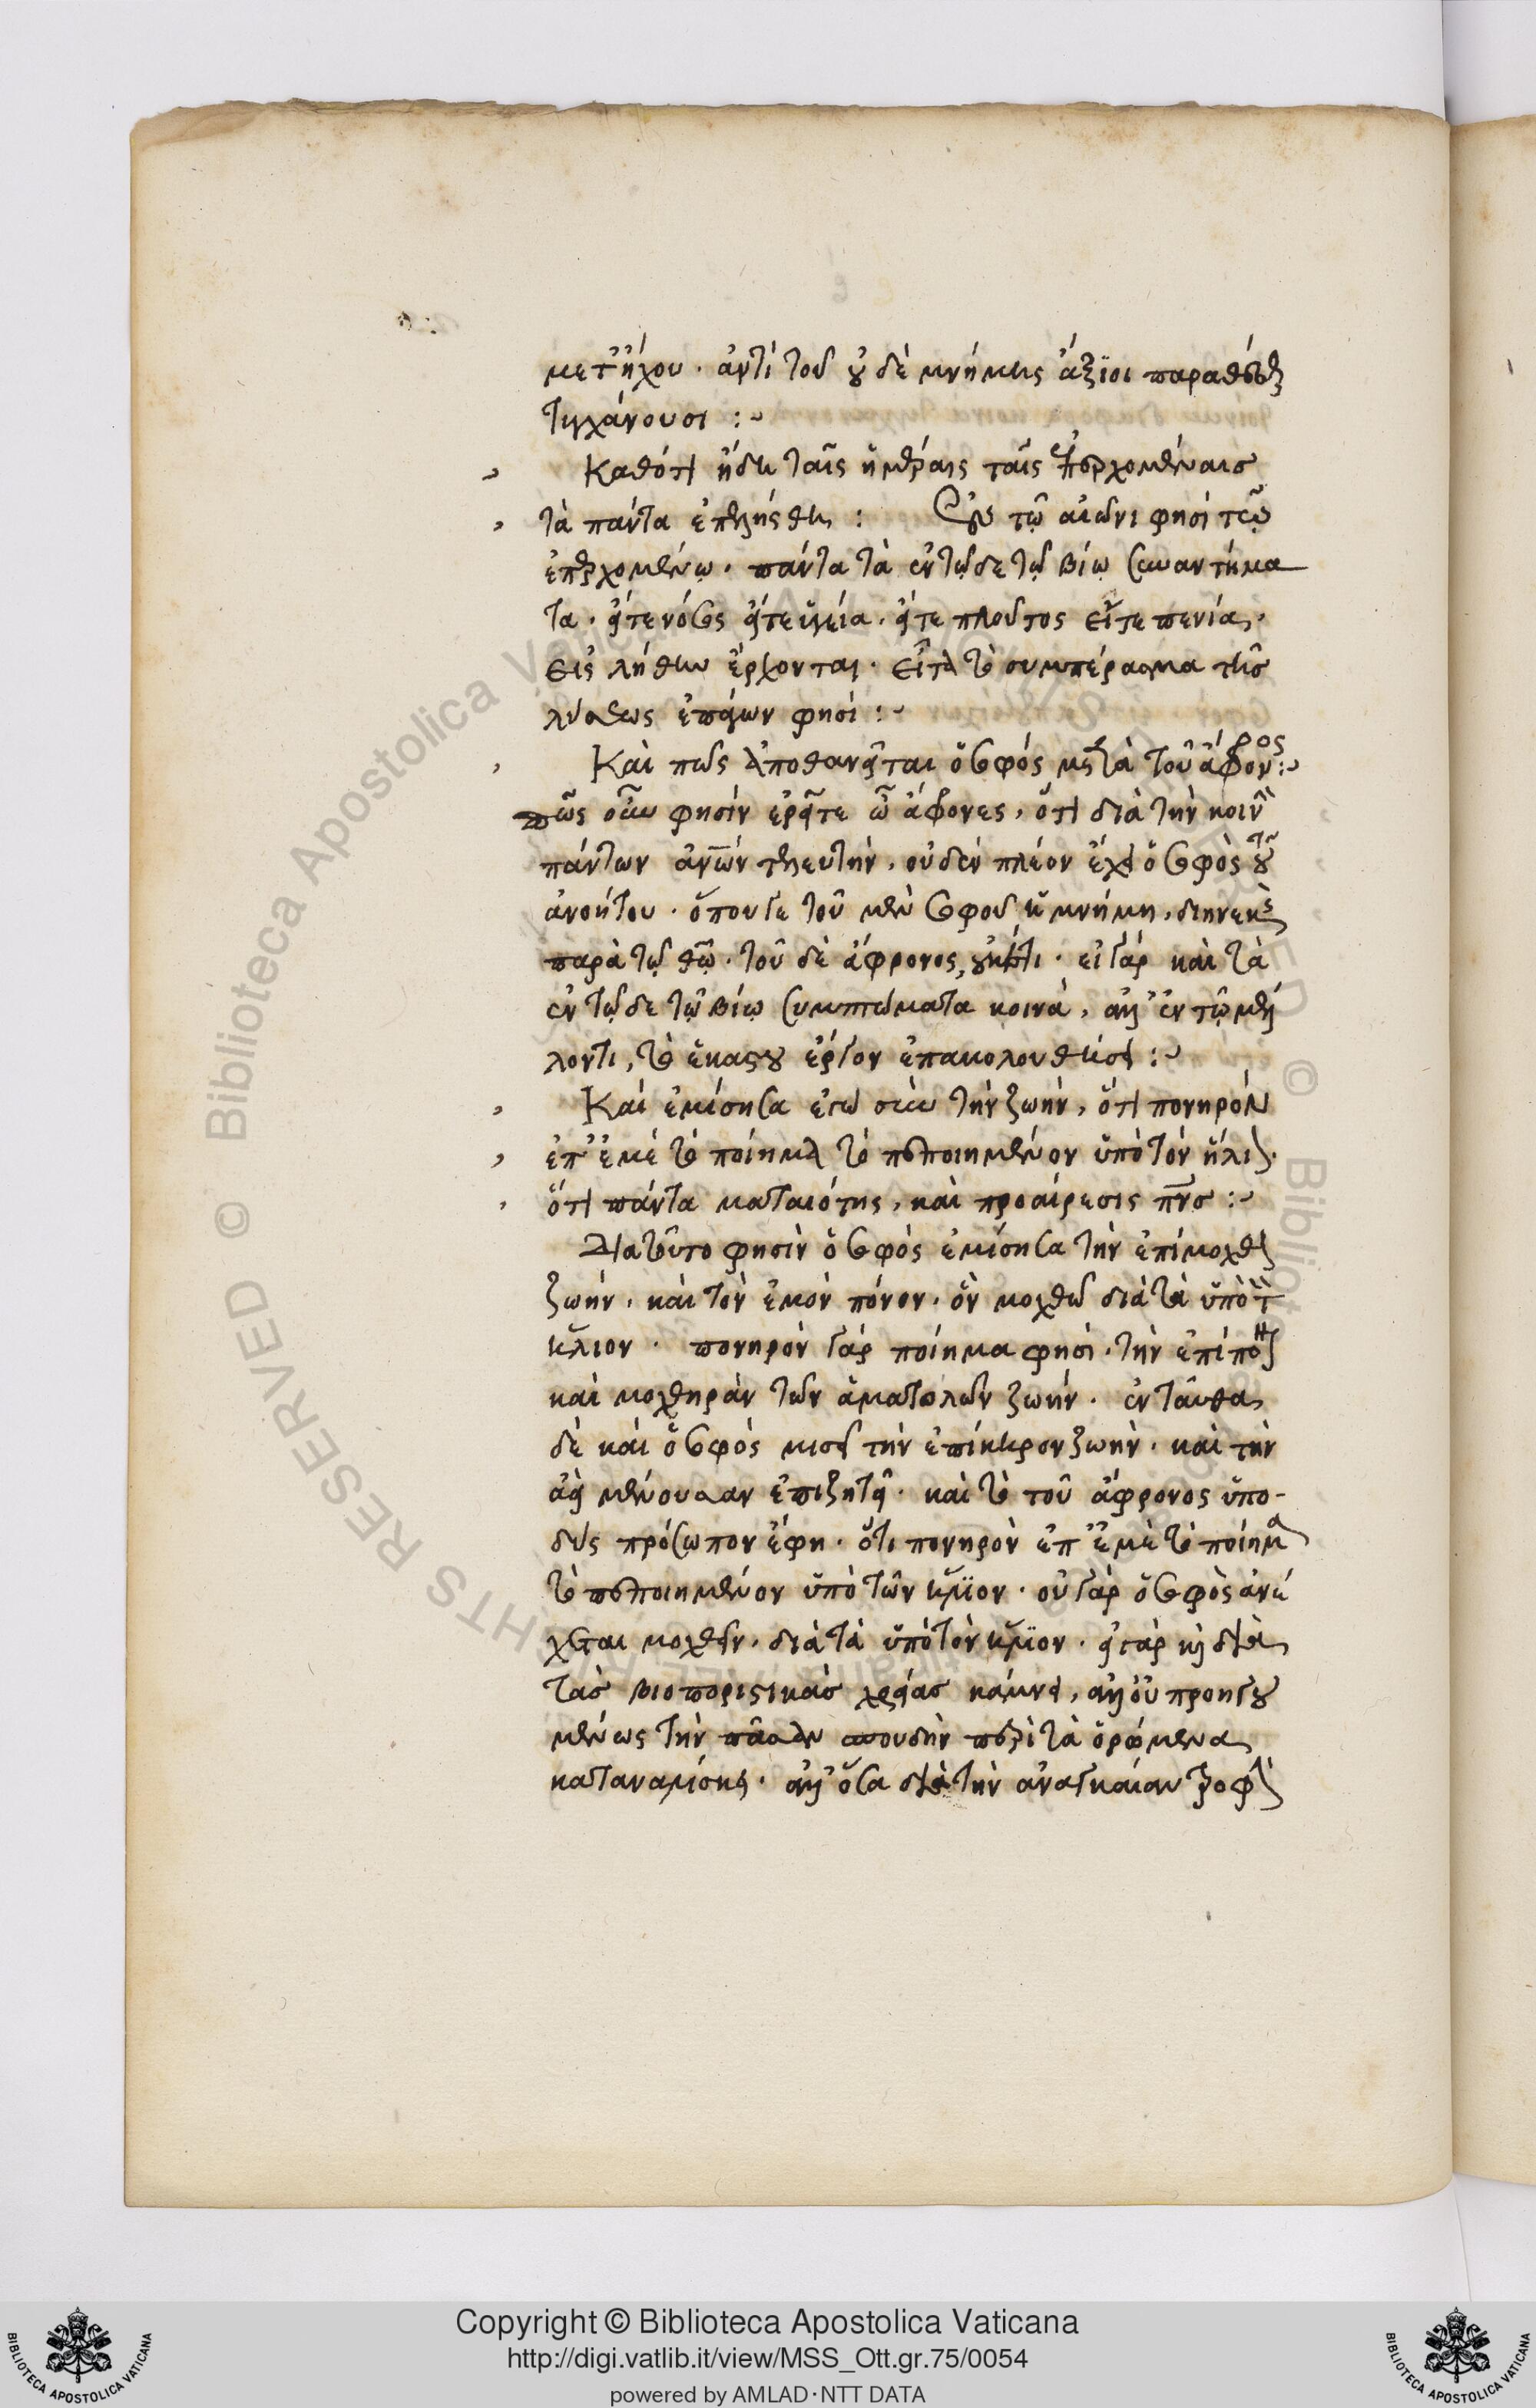 μετ' ἤχου · ἀντὶ τοῦ οὐδὲ μνήμης ἄξιοι παρὰ θεῷ
τυγχάνουσι :~
Καθότι ἤδη ταῖς ἡμέραις ταῖς ἐπερχομέναις
τὰ πάντα ἐπλήσθη : Ἐν τῷ αἰῶνι φησὶ τῷ
ἐπερχομένῳ · πάντα τὰ ἐν τῷδε τῷ βίῳ συναντήμα
τα · εἴτε νόσος εἴτε ὑγεία · εἴτε πλοῦτος εἴτε πενία ·
εἰς λήθην ἔρχονται · εἶτα τὸ συμπέρασμα τῆς
λύσεως ἐπάγων φησί :~
Καὶ πῶς ἀποθανεῖται ὁ σοφός μετὰ τοῦ ἄφρονος :~
πῶς οὖν φησὶν ἐρεῖτε ὦ ἄφρονες, ὅτι διὰ τὴν κοινὴν
πάντων ἀνῶν τελευτὴν, οὐδὲν πλέον ἔχει ὁ σοφὸς τοῦ
ἀνοήτου · ὅπου γε τοῦ μὲν σοφοῦ ἡ μνήμη, διηνεκὴς
παρὰ τῷ θῶ · τοῦ δὲ ἄφρονος, οὐκέτι · εἰ γὰρ καὶ τὰ
ἐν τῷδε τῷ βίῳ συμπτώματα κοινὰ, ἀλλ' ἐν τῷ μέλ
λοντι, τὸ ἑκάστου ἔργον ἐπακολουθήσει :~
Καὶ ἐμίσησα ἐγὼ σὺν τὴν ζωὴν, ὅτι πονηρὸν
ἐπ' ἐμὲ τὸ ποίημα τὸ πεποιημένον ὑπὸ τὸν ἥλιον ·
ὅτι πάντα ματαιότης, καὶ προαίρεσις πνς :~
Διὰ τοῦτο φησὶν ὁ σοφὸς ἐμίσησα τὴν ἐπίμοχθον
ζωὴν · καὶ τὸν ἐμὸν πόνον · ὃν μοχθῶ διὰ τὰ ὑπὸ τὸν
ἥλιον · πονηρὸν γὰρ ποίημα φησὶ · τὴν ἐπίπονον
καὶ μοχθηρὰν τῶν ἁμαρτωλῶν ζωὴν · ἐνταῦθα
δὲ καὶ ὁ σοφὸς μισεῖ τὴν ἐπίκηρον ζωὴν · καὶ τὴν
ἀεὶ μένουσαν ἐπιζητεῖ · καὶ τὸ τοῦ ἄφρονος ὑπο-
δὺς πρόσωπον ἔφη · ὅτι πονηρὸν ἐπ' ἐμὲ τὸ ποίημα
τὸ πεποιημένον ὑπὸ τὸν ἥλιον · οὐ γὰρ ὁ σοφὸς ἀνέ
χεται μοχθεῖν · διὰ τὰ ὑπὸ τὸν ἥλιον · εἰ γὰρ καὶ διὰ
τὰς βιοποριστικὰς χρείας κάμνει, ἀλλ' οὐ προηγου
μένως τὴν πᾶσαν σπουδὴν περὶ τὰ ὁρώμενα
καταναλίσκει · ἀλλ' ὅσα διὰ τὴν ἀναγκαίαν τροφὴν
Copyright © Biblioteca Apostolica Vaticana
http://digi.vatlib.it/view/MSS_Ott.gr.75/0054
powered by AMLAD·NTT DATA